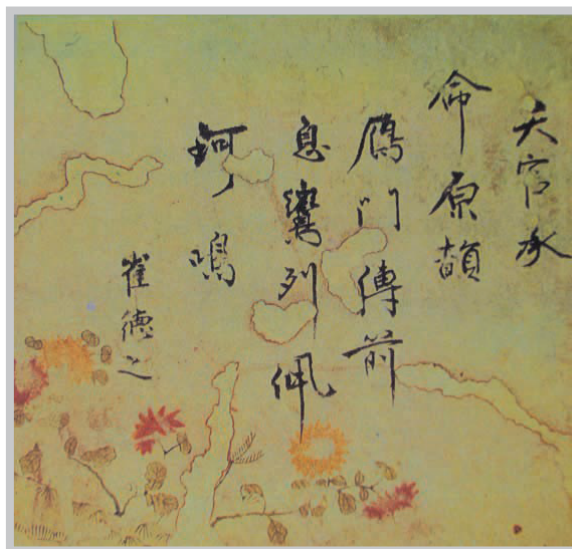 天官承
命原
鴈門傳前
息列佩
珂鳴
崔德之